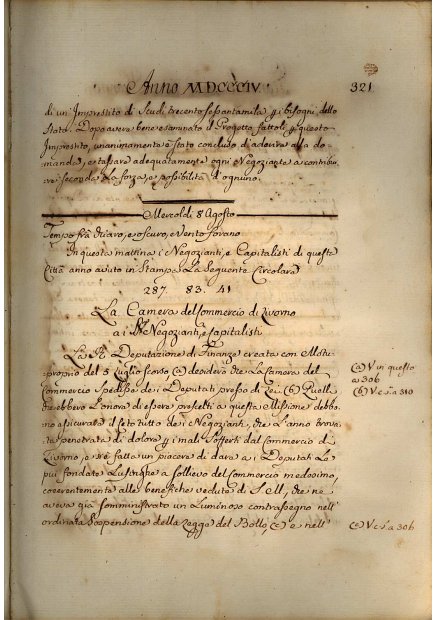 Anno MDCCCIV. 321
di un' Imprestito di Scudi trecentosessantamila pp i bisogni dello
Stato. Dopo avere bene esaminato il Progetto fattoli pp questo
Imprestito, unanimamente è stato concluso d'aderire alla do-
manda, e tassare adeguatamente ogni Negoziante a contribui-
re secondo la forza, e possibilità d'ognuno.
Mercoldì 8 Agosto
Tempo frà chiaro, e oscuro, e Vento forano
In questa mattina i Negozianti, e Capitalisti di questa
Città anno avuto in Stampa La Seguente Circolare
287 83. 41
La Camera del Commercio di Livorno
a i Negozianti, e Capitalisti
La R. Deputazione di Finanze creata con Motu-
proprio del 5 Luglio scorso, (a) desiderò che La Camera del
Commercio Spedisse de i Deputati presso di Lei (b) Quelli
che ebbero L'onore di essere prescelti a questa Missione debbo-
no assicurare il Ceto tutto de i Negozianti, che L'anno trova-
ta penetrata di dolore pp i mali Sofferti dal Commercio di
Livorno, e si è fatta un piacere di dare a i Deputati Le
più fondate Lusinghe a sollievo del Commercio medesimo,
coerentemente alle benefiche vedute di S. M., che ne
aveva già somministrato un Luminoso contrassegno nell'
ordinata Sospensione della Legge del Bollo, (c) e nell'
(a) V in questo
a 306
(b) V e s a 310
(c) V e s a 306